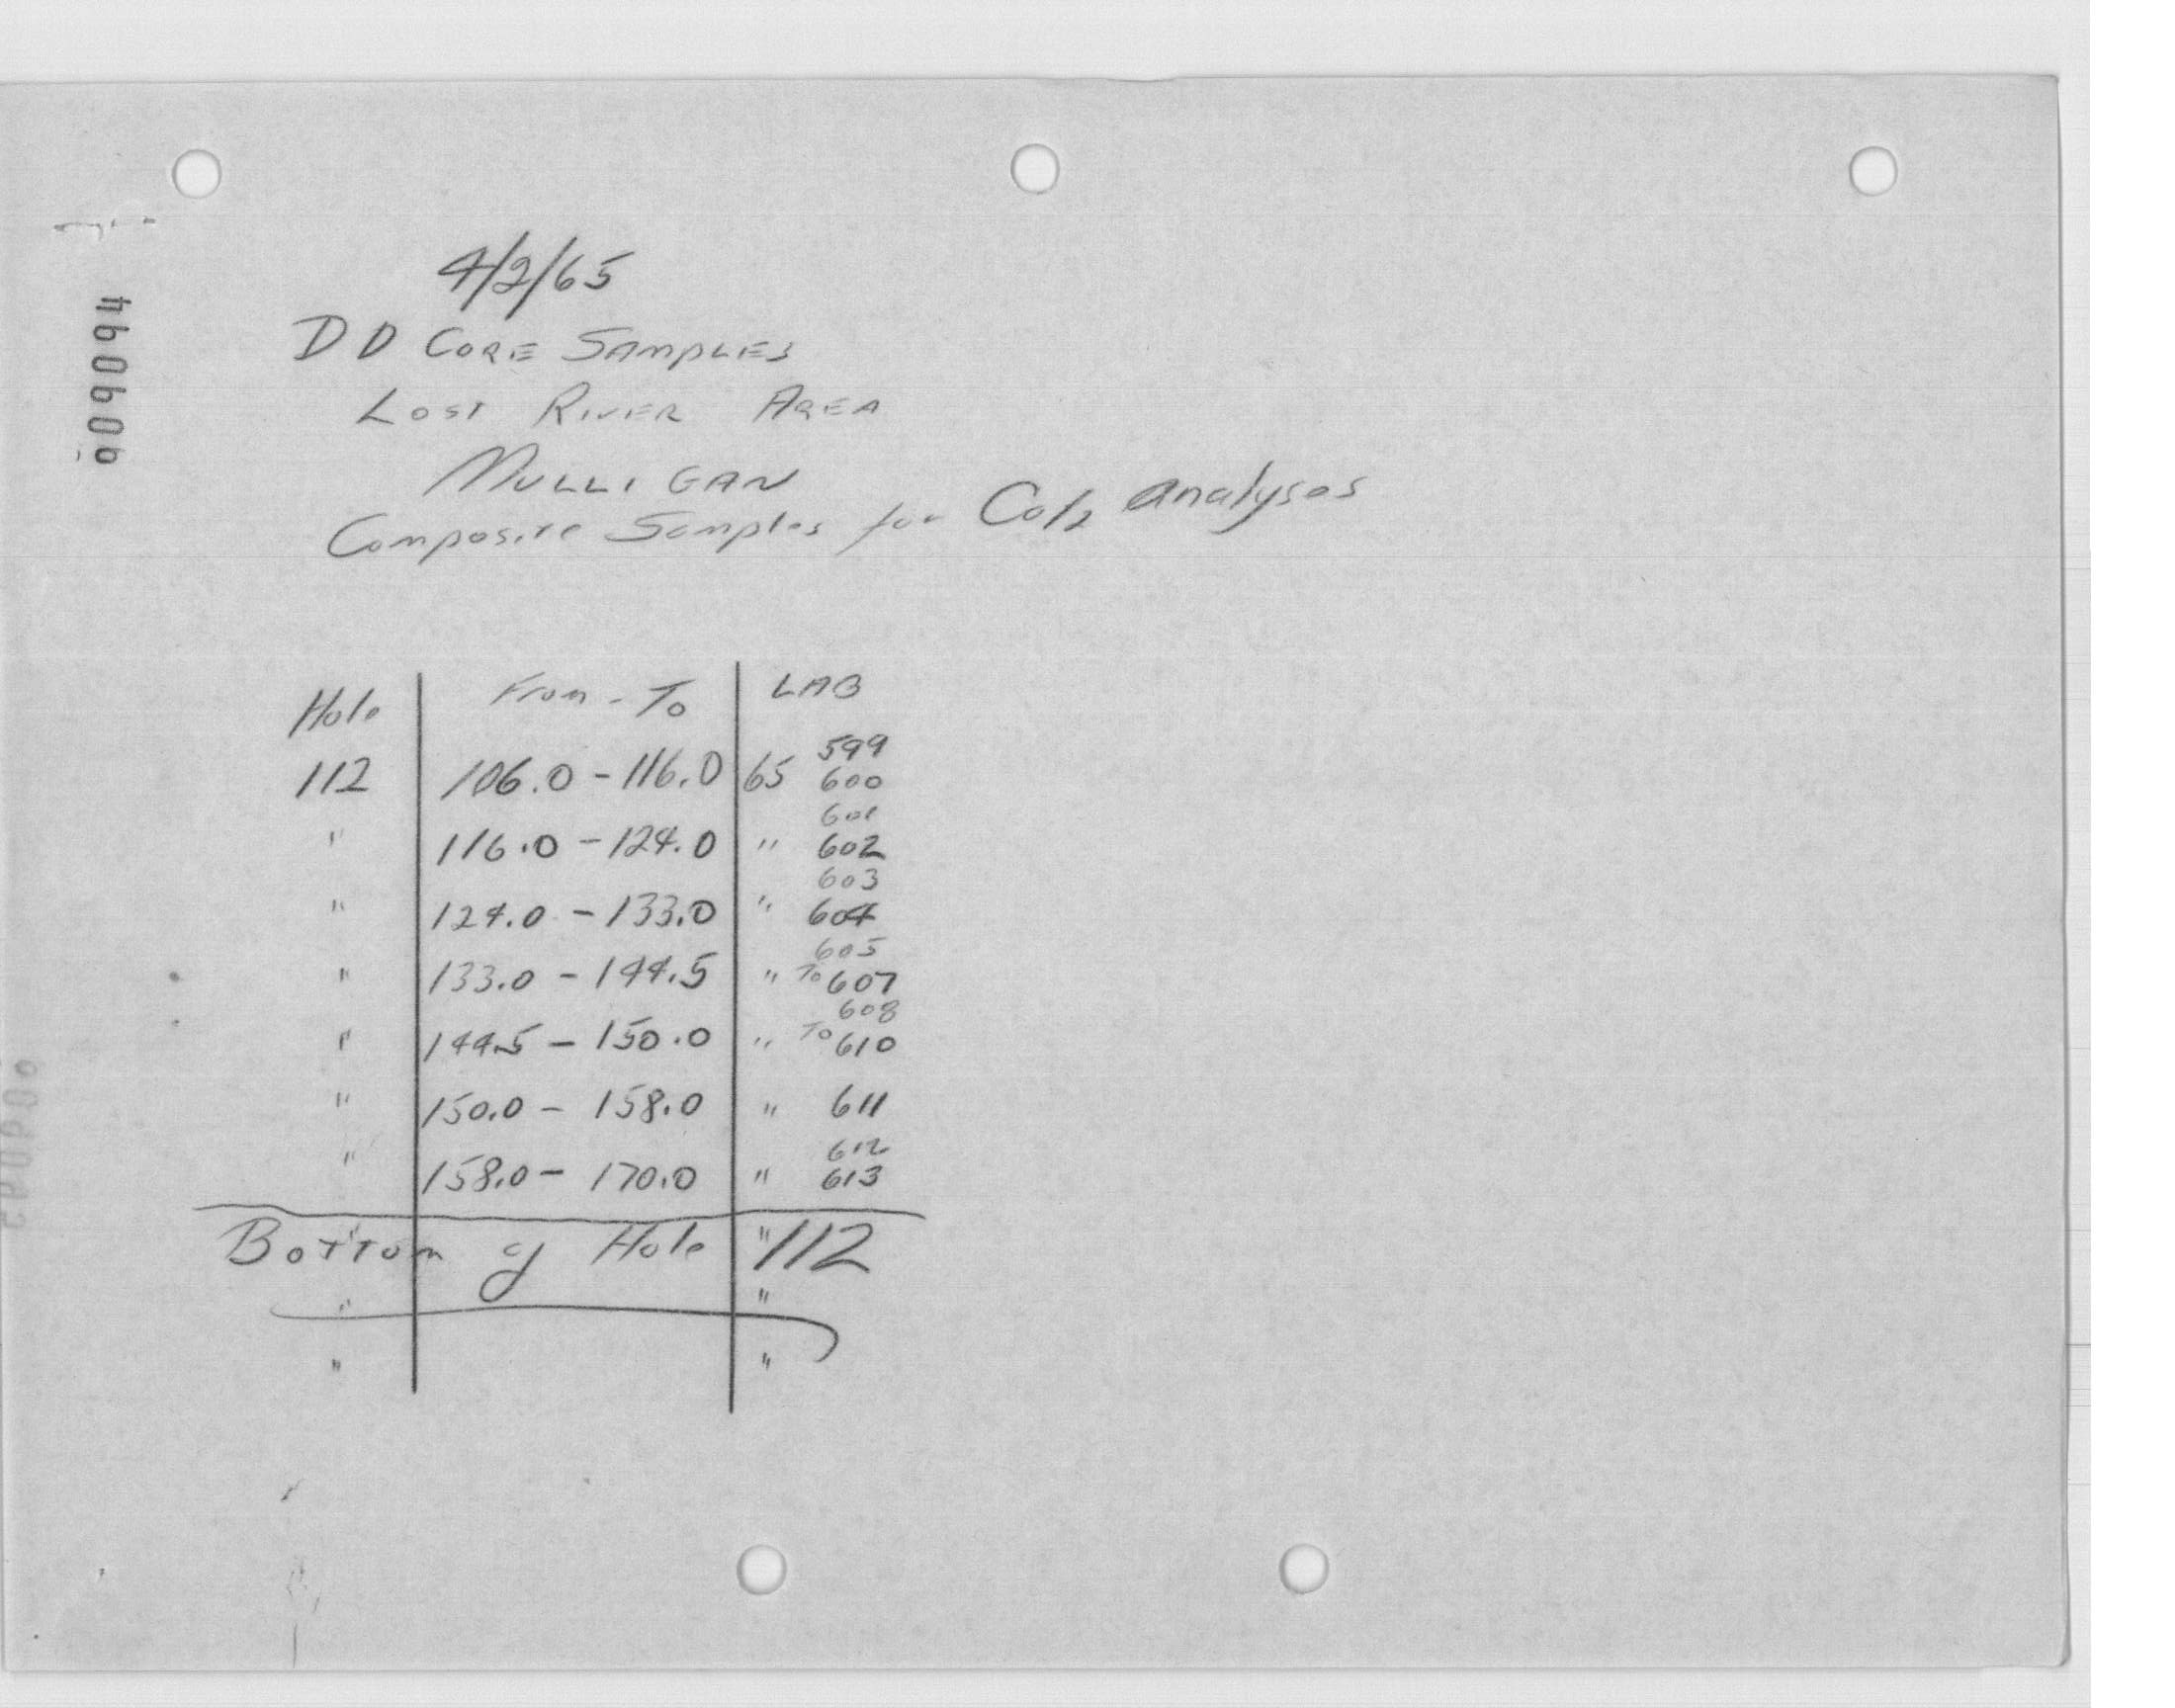 4/2/65
DD CORE SAMPLES
LOST RIVER AREA
MULLIGAN
Composite Samples for analyses
Hole From - To LAB
599
112 106.0 - 116.0 65 600
601
" 116.0 - 124.0 " 602
603
" 124.0 - 133.0 " 604
605
" 133.0 - 144.5 " To 607
608
" 144.5 - 150.0 " To 610
" 150.0 - 158.0 " 611
612
" 158.0 - 170.0 " 613
Bottom of Hole " 112
" "
" "